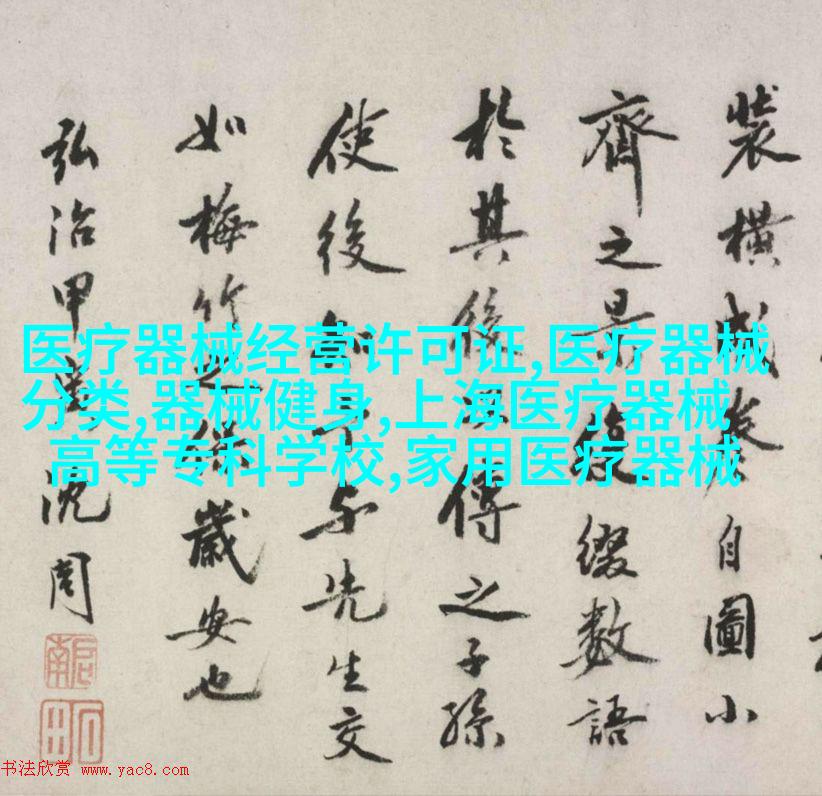 裝橫成卷自圖小
齊之景後綴數語
於其後以傳之子孫
使後知予与先生交
如梅竹之保歲安也
弘治甲寅沈周
啟南
石田
医疗器械经营许可证,医疗器械
分类,器械健身,上海医疗器械
高等专科学校,家用医疗器械
书法欣赏 www.yac8.com